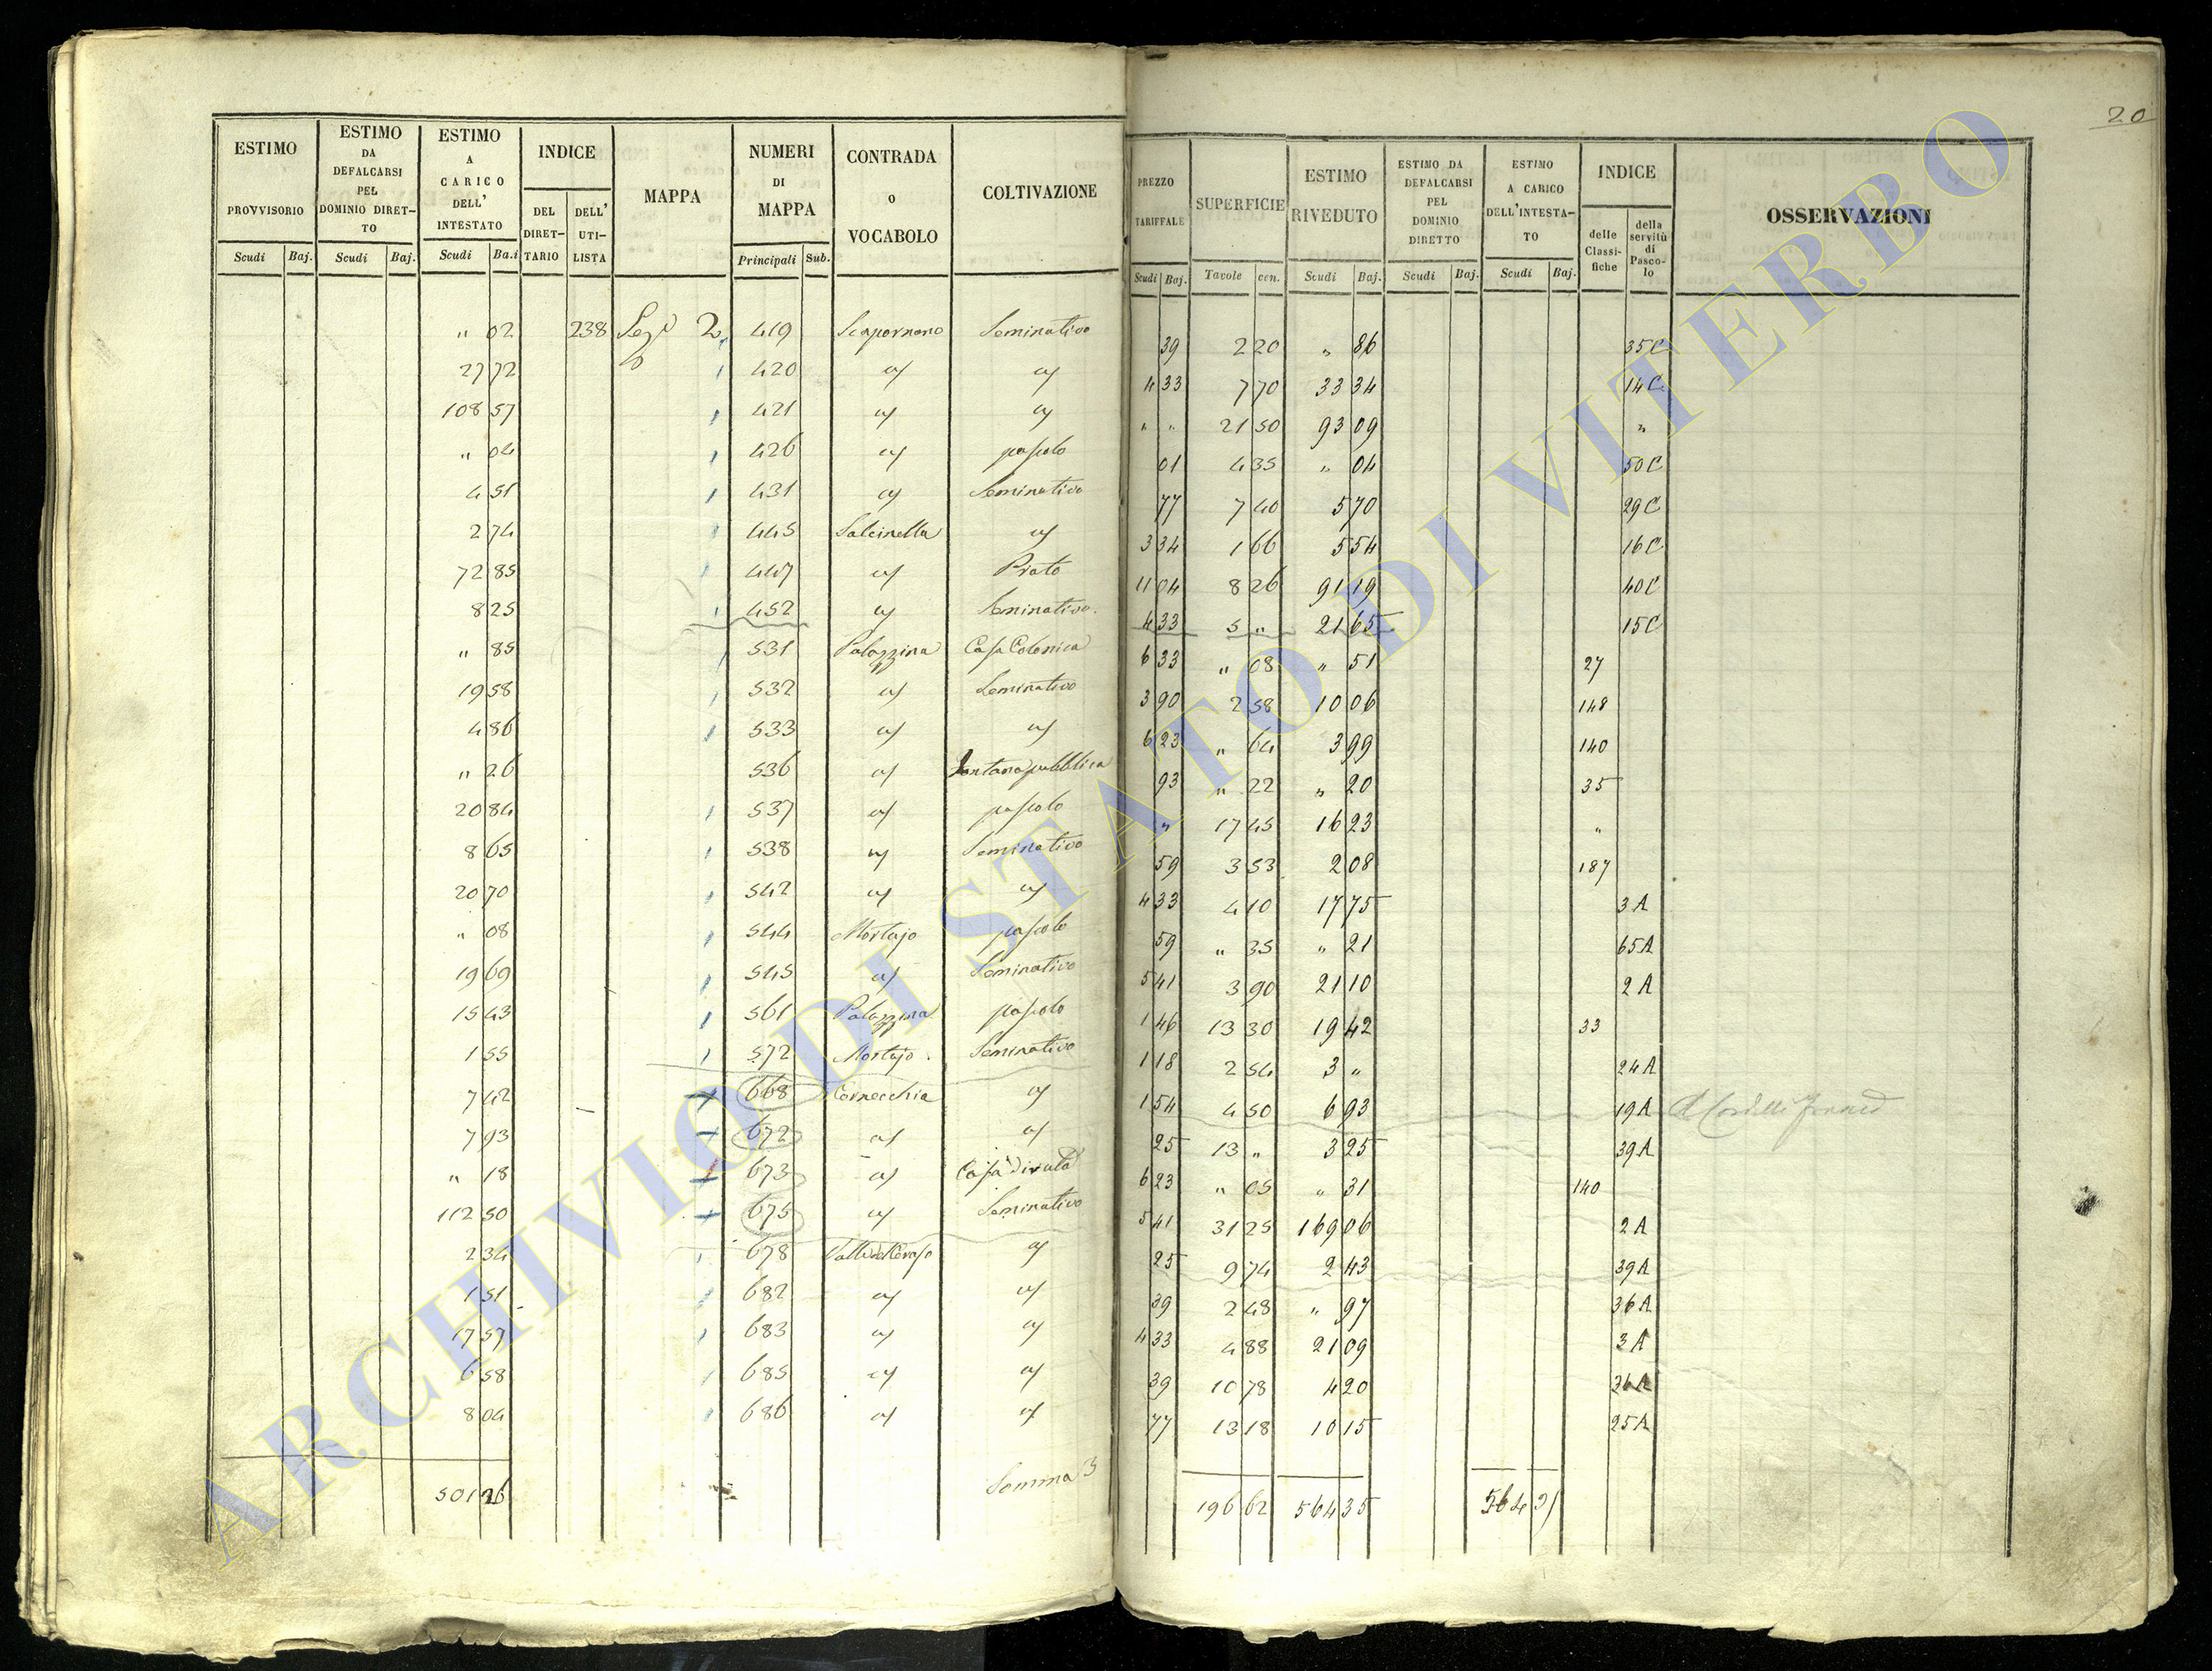 20
ESTIMO PROVVISORIO Scudi Baj.
ESTIMO DA DEFALCARSI PEL DOMINIO DIRETTO Scudi Baj.
ESTIMO A CARICO DELL' INTESTATO Scudi Ba.i
INDICE DEL DIRETTARIO DELL' UTILISTA
MAPPA
NUMERI DI MAPPA Principali Sub.
CONTRADA o VOCABOLO
COLTIVAZIONE
PREZZO TARIFFALE Scudi Baj.
SUPERFICIE Tavole cen.
ESTIMO RIVEDUTO Scudi Baj.
ESTIMO DA DEFALCARSI PEL DOMINIO DIRETTO Scudi Baj.
ESTIMO A CARICO DELL'INTESTATO Scudi Baj.
INDICE delle Classifiche della servitù di Pascolo
OSSERVAZIONI
" 02 238 2 419 Seminativo 39 2 20 " 86 35C
27 72 420 a/ a/ 4 33 7 70 33 34 14C
108 57 421 a/ a/ " " 21 50 93 09 "
" 04 426 a/ pascolo 01 4 35 " 04 50C
4 51 431 a/ Seminativo 77 7 40 5 70 29C
2 74 445 Salcinella a/ 3 34 1 66 5 54 16C
72 85 447 a/ Prato 11 04 8 26 91 19 40C
8 25 452 a/ Seminativo 4 33 5 " 21 65 15C
" 85 531 Palazzina Casa Colonica 6 33 " 08 " 51 27
19 58 532 a/ Seminativo 3 90 2 58 10 06 148
4 86 533 a/ a/ 6 23 " 64 3 99 140
" 26 536 a/ Fontana pubblica 93 " 22 " 20 35
20 84 537 a/ pascolo " 17 45 16 23 "
8 65 538 a/ Seminativo 59 3 53 2 08 187
20 70 542 a/ a/ 4 33 4 10 17 75 3A
" 08 544 Mortajo pascolo 59 " 35 " 21 65A
19 69 545 a/ Seminativo 5 41 3 90 21 10 2A
15 43 561 Palazzina pascolo 1 46 13 30 19 42 33
1 55 572 Mortajo Seminativo 1 18 2 54 3 " 24A
7 42 668 Cornecchia a/ 1 54 4 50 6 93 19A
7 93 672 a/ a/ 25 13 " 3 25 39A
" 18 673 a/ Casa diruta 6 23 " 05 " 31 140
112 50 675 a/ Seminativo 5 41 31 25 169 06 2A
2 34 678 a/ 25 9 74 2 43 39A
1 51 682 a/ a/ 39 2 48 " 97 36A
17 57 683 a/ a/ 4 33 4 88 21 09 3A
6 58 685 a/ a/ 39 10 78 4 20 36A
8 04 686 a/ a/ 77 13 18 10 15 25A
501 26 Somma 3 196 62 564 35
ARCHIVIO DI STATO DI VITERBO